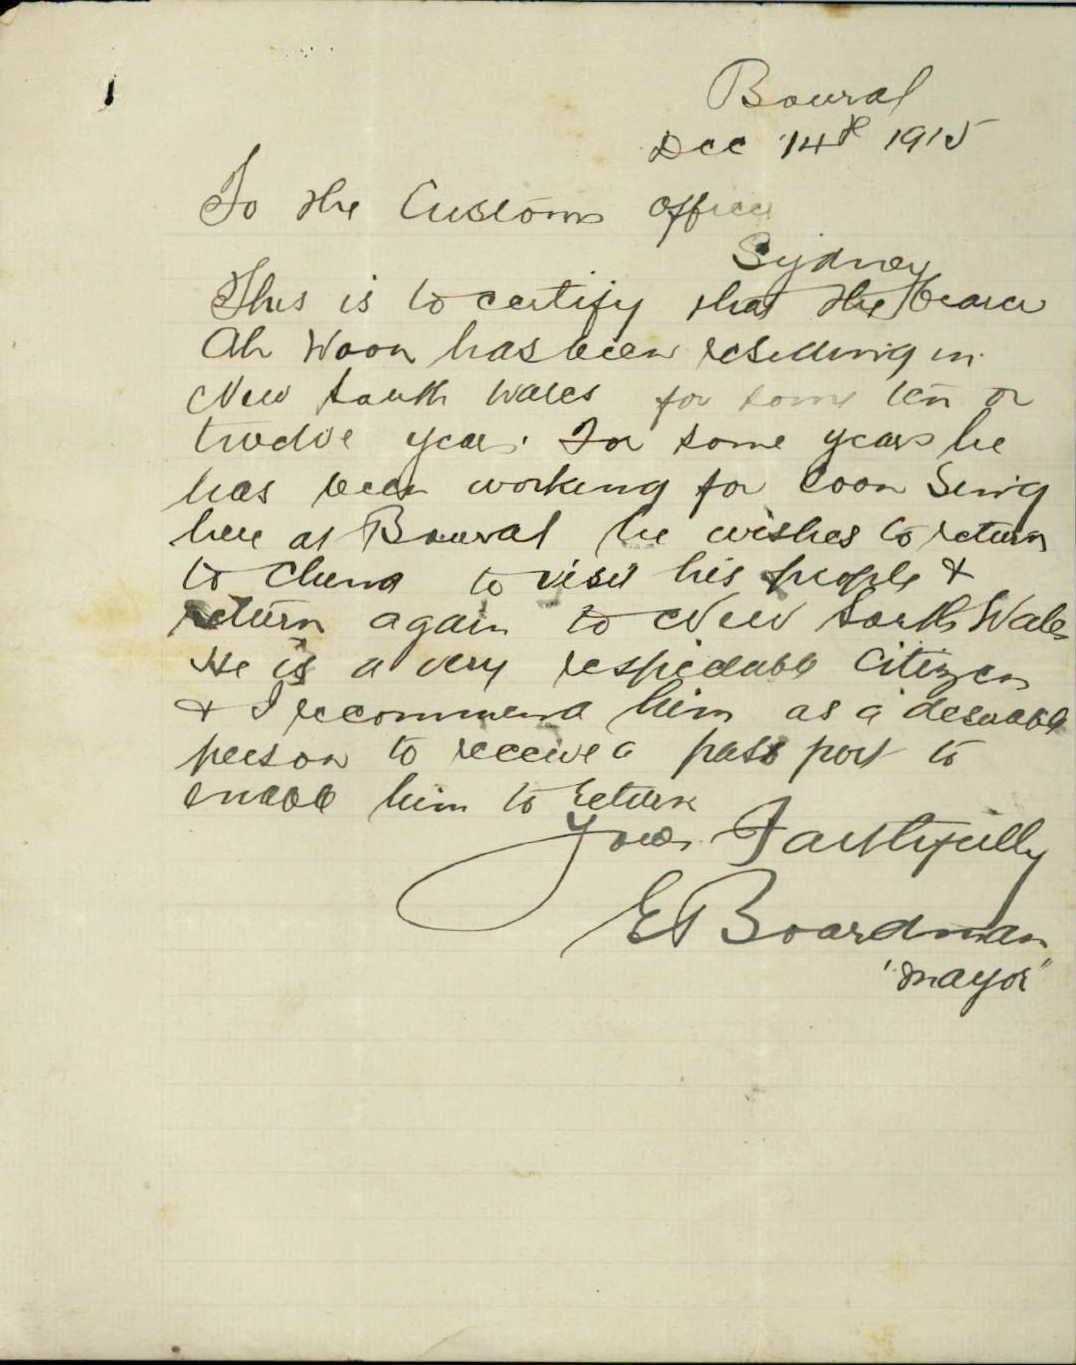 Bowral
Dec 14th 1915
To the Customs Office
Sydney
This is to certify that the bearer
Ah Woon has been residing in
New South Wales for some ten or
twelve years. For some years he
has been working for Coon Sing
here at Bowral he wishes to return
to China to visit his people &
return again to New South Wales
He is a very respectable Citizen
& I recommend him as a desirable
person to receive a pass port to
enable him to return
Yours Faithfully
E Boardman
"Mayor"